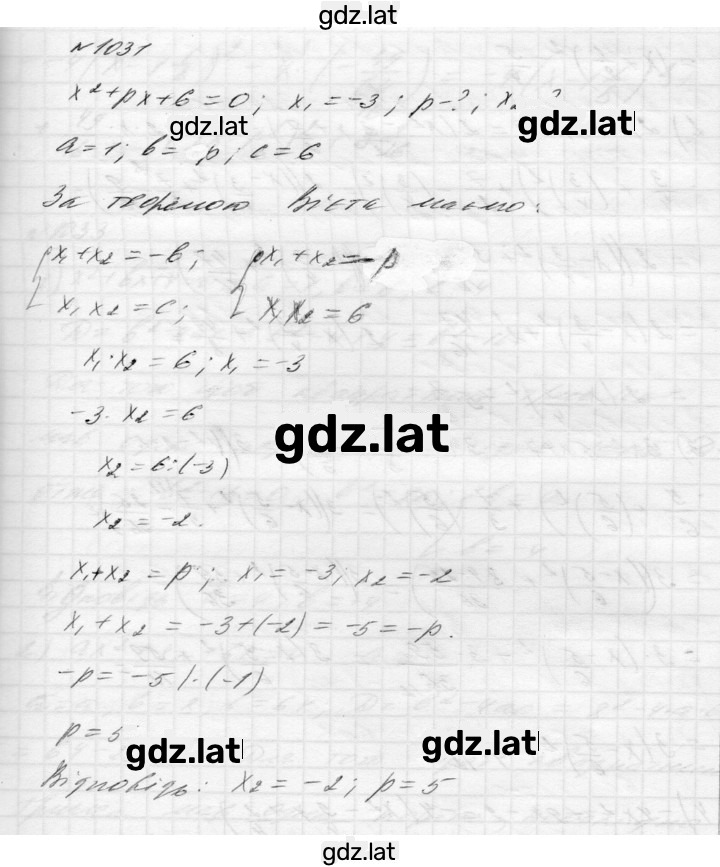 gdz.lat
№1031
x²+px+6=0; x₁=-3; p-?; x₂ ?
gdz.lat
gdz.lat
a=1; b= p; c=6
За теоремою Вієта маємо:
{x₁+x₂=-b; {x₁+x₂=-p
x₁x₂=c; x₁x₂=6
x₁·x₂=6; x₁=-3
-3·x₂=6
gdz.lat
x₂=6:(-3)
x₂=-2.
x₁+x₂=p; x₁=-3; x₂=-2
x₁+x₂=-3+(-2)=-5=-p.
-p=-5|·(-1)
p=5
gdz.lat
gdz.lat
Відповідь: x₂=-2; p=5
gdz.lat